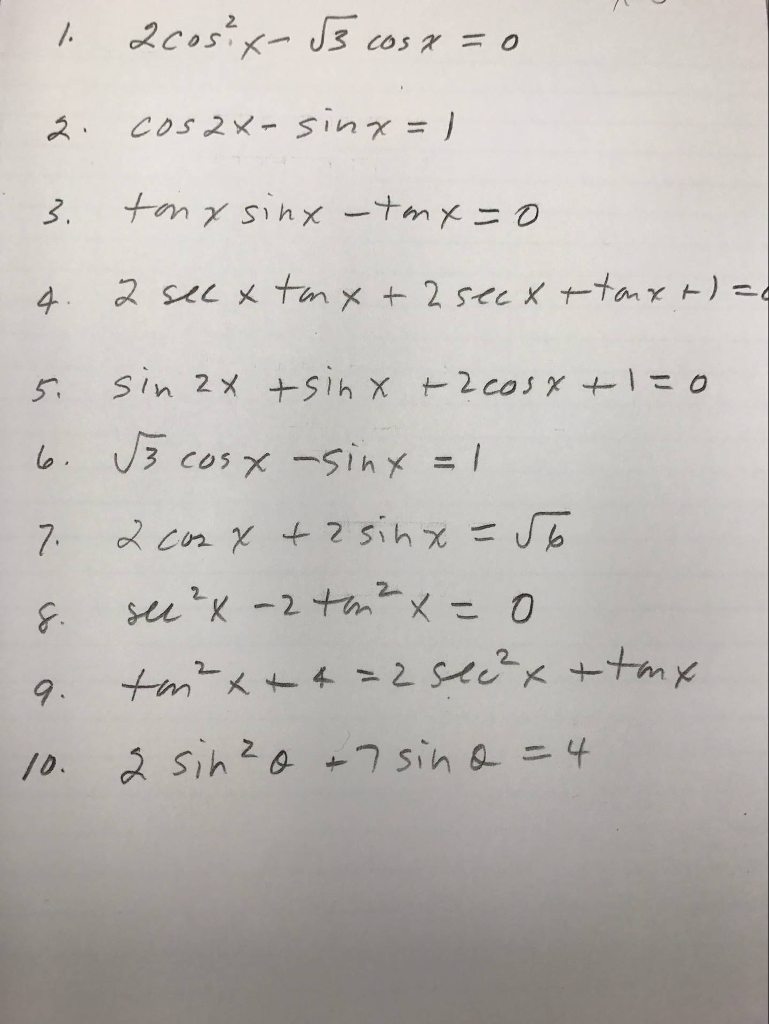 1. 2cos²x - √3 cos x = 0
2. cos2x - sinx = 1
3. tan x sinx - tanx = 0
4. 2 sec x tan x + 2 sec x + tanx + 1 =
5. sin 2x + sin x + 2cosx + 1 = 0
6. √3 cosx - sinx = 1
7. 2 cos x + 2 sinx = √6
8. sec²x - 2 tan²x = 0
9. tan²x + 4 = 2 sec²x + tanx
10. 2 sin²θ + 7 sin θ = 4